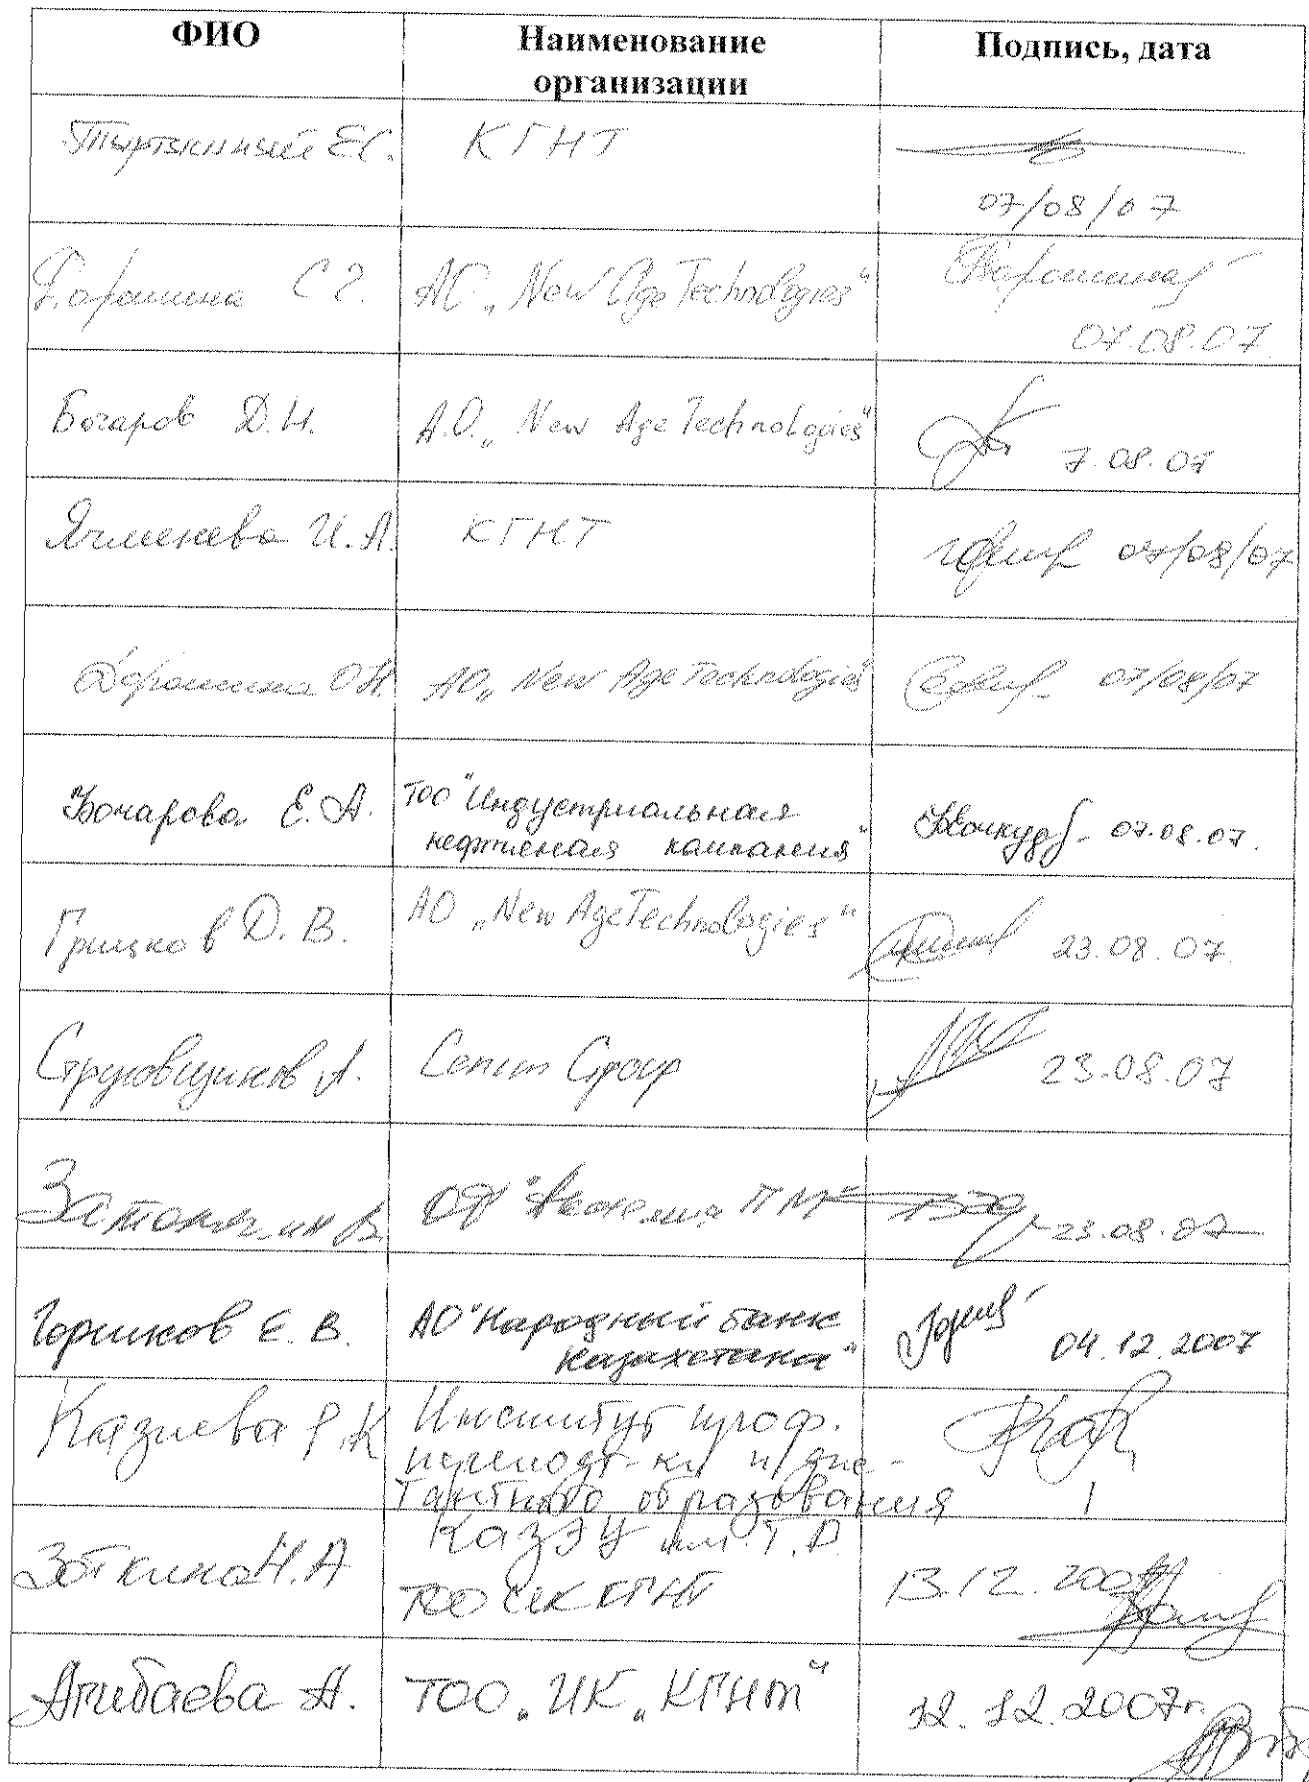 ФИО
Наименование
организации
Подпись, дата
Е.С.
КГНТ
07/08/07
Дорошина С Г.
АО „New Age Technologies“
Дорошина
07.08.07
Бочаров Д.Н.
А.О. „New Age Technologies“
7.08.07
Ячменева И.А.
КГНТ
07/08/07
Дорошина О.Н.
АО „New Age Technologies“
07/08/07
Бочарова Е.А.
ТОО "Индустриальная
нефтяная компания"
07.08.07.
Грицков Д.В.
АО „New Age Technologies“
23.08.07.
Струговщиков А.
Cenim Group
23.08.07
В.
"Академия ПМ"
23.08.07
Горшков Е.В.
АО "Народный банк
Казахстана"
04.12.2007
Казиева Р.К
Институт проф.
переподг-ки и дис-
тантного образования
КазЭУ им. Т.Р.
Зоткина Н.А
ТОО КГНТ
13.12.2007
Агибаева А.
ТОО „ИК „КГНТ“
12.12.2007г.